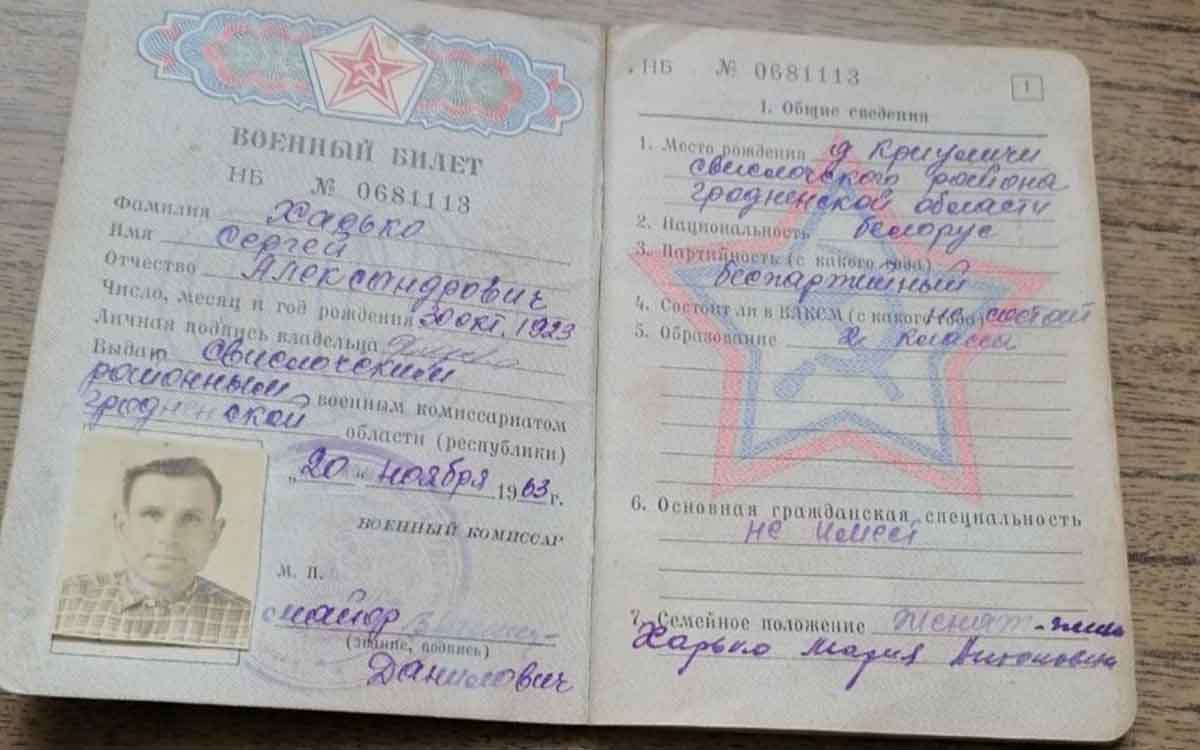 ВОЕННЫЙ БИЛЕТ
НБ № 0681113
Фамилия Хадько
Имя Сергей
Отчество Александрович
Число, месяц и год рождения 30 окт. 1923
Личная подпись владельца
Выдан Свислочским
районным военным комиссариатом
гродненской области (республики)
„20" ноября 1963 г.
ВОЕННЫЙ КОМИССАР
М. П.
майор
(звание, подпись)
Данилович
НБ № 0681113
1
1. Общие сведения
1. Место рождения д Криуличи
свислочского района
гродненской области
2. Национальность белорус
3. Партийность (с какого года)
беспартийный
4. Состоит ли в ВЛКСМ (с какого года) не состоит
5. Образование классы
6. Основная гражданская специальность
не имеет
7. Семейное положение женат - жена
Харько Мария Антоновна